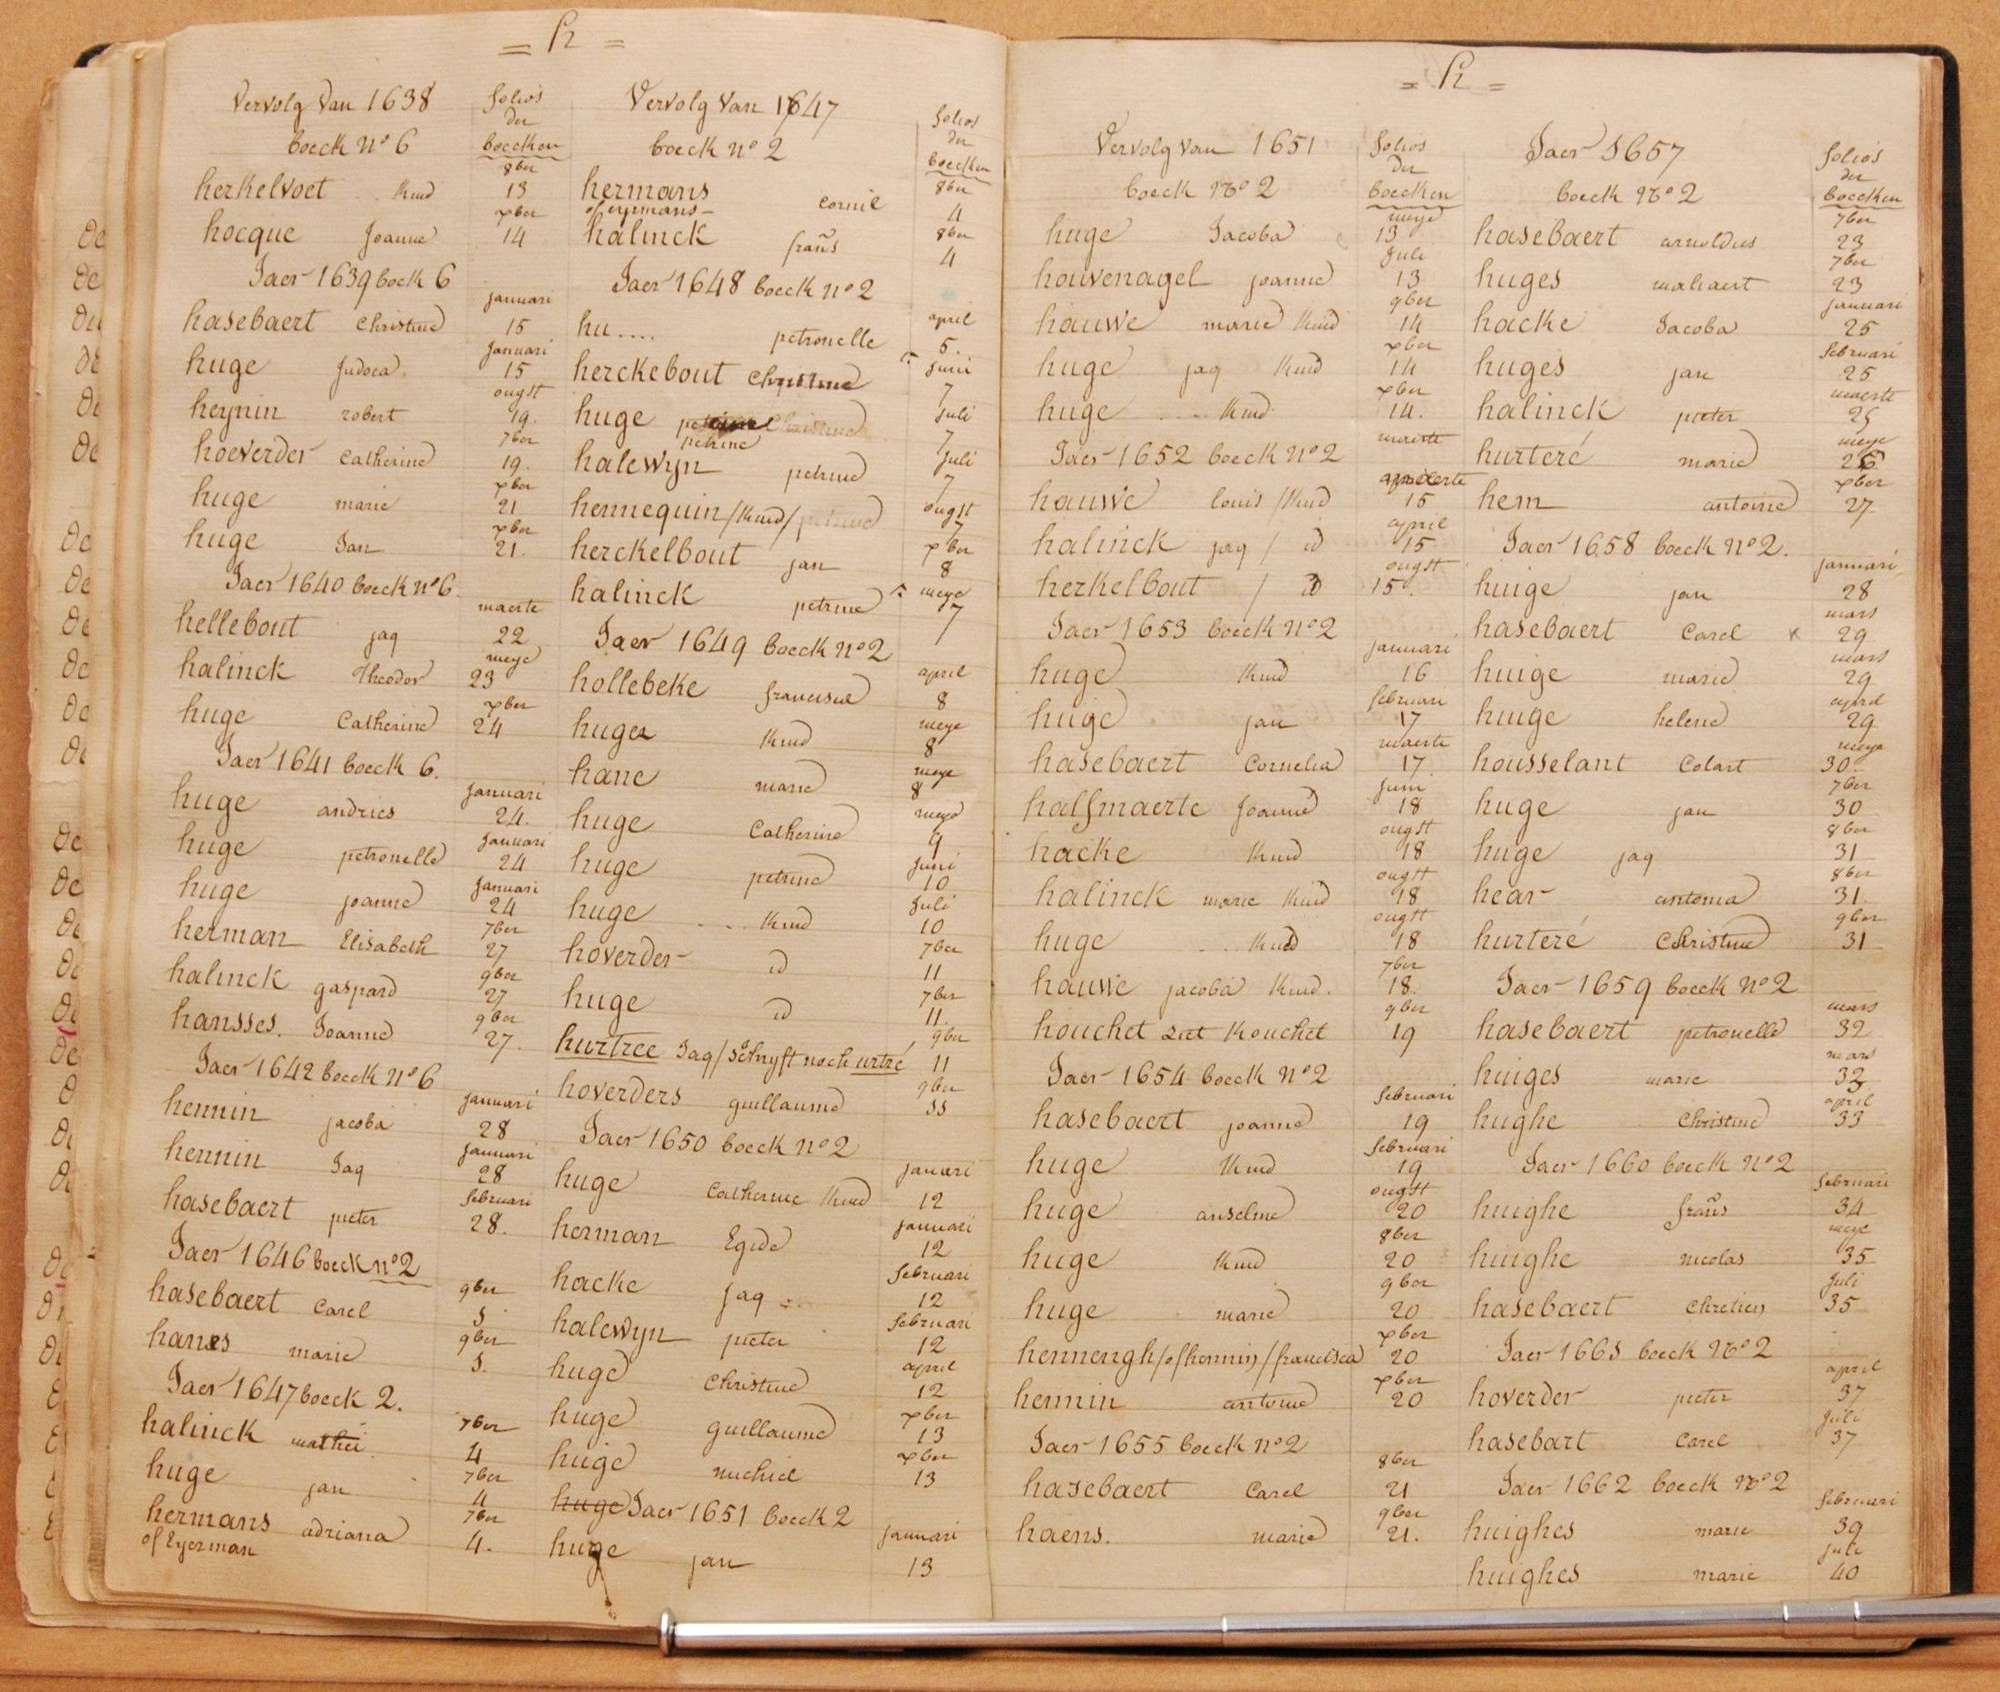 = H =
Vervolg van 1638
boeck no 6
folio's
der
boecken
herkelvoet .. kind 8ber 13
hocque Joanne xber 14
Jaer 1639 boeck 6
hasebaert Christine januari 15
huge Judoca januari 15
heynin robert ougst 19.
hoeverder Catherine 7ber 19.
huge marie xber 21
huge Jan xber 21.
Jaer 1640 boeck no 6.
hellebout jaq maerte 22
halinck Theodor meye 23
huge Catherine xber 24
Jaer 1641 boeck 6.
huge andries januari 24.
huge petronelle januari 24
huge joanne januari 24
herman Elisabeth 7ber 27
halinck gaspard 9ber 27
hansses. Joanne 9ber 27.
Jaer 1642 boeck no 6
hennin jacoba januari 28
hennin Jaq januari 28
hasebaert pieter februari 28.
Jaer 1646 boeck no 2
hasebaert Carel 9ber 3.
hanes marie 9ber 3.
Jaer 1647 boeck 2.
halinck mathei 7ber 4
huge jan 7ber 4
hermans adriana 7ber 4.
of Eyerman
Vervolg van 1647
boeck no 2
folios
der
boecken
hermans Cornil 8ber 4
of eyrmans
halinck frans 8ber 4
Jaer 1648 boeck no 2
hu.... petronelle april 5.
herckebout Christine juni 7
huge petrine juli 7
halewyn petrine juli 7
hennequin /kind/ petrine ougst 7
herckelbout jan xber 8
halinck petrine meye 7
Jaer 1649 boeck no 2
hollebeke francisca april 8
huge kind meye 8
hane marie meye 8
huge Catherine meye 9
huge petrine juni 10
huge ... kind juli 10
hoverder id 7ber 11
huge id 7ber 11.
hurtree Jaq / schryft noch urtré 9ber 11
hoverders guillaume 9ber 11
Jaer 1650 boeck no 2
huge Catherine kind januari 12
herman Egide januari 12
hacke jaq februari 12
halewyn pieter februari 12
huge Christine april 12
huge guillaume xber 13
huge michiel xber 13
huge Jaer 1651 boeck 2
huge jan januari 13
= H =
Vervolg van 1651
boeck no 2
folios
der
boecken
huge Jacoba meye 13
houvenagel joanne Juli 13
hauwe marie kind 9ber 14
huge jaq kind xber 14
huge .... kind xber 14.
Jaer 1652 boeck no 2
hauwe louis / kind maerte 15
halinck jaq / id april 15
herkelbout / id ougst 15.
Jaer 1653 boeck no 2
huge kind januari 16
huge jan februari 17
hasebaert Cornelia maerte 17.
halfmaerte Joanne juni 18
hacke kind ougst 18
halinck marie kind ougst 18
huge .. kind ougst 18
hauwe jacoba kind. 7ber 18.
houchet ziet Kouchet 9ber 19
Jaer 1654 boeck no 2
hasebaert joanne februari 19
huge kind februari 19
huge anselme ougst 20
huge kind 8ber 20
huge marie 9ber 20
hennengh /of hennin/ francisca xber 20
hennin antoine xber 20
Jaer 1655 boeck no 2
hasebaert Carel 8ber 21
haens. marie 9ber 21.
Jaer 1657
boeck no 2
folio's
der
boecken
hasebaert arnoldus 7ber 23
huges mahaert 7ber 23
hacke Jacoba januari 25
huges jan februari 25
halinck pieter maerte 25
hurteré marie meye 26
hem antoine xber 27
Jaer 1658 boeck no 2.
huige jan januari 28
hasebaert Carel x mars 29
huige marie mars 29
huige helene april 29
housselant Colart meye 30
huge jan 7ber 30
huge jaq 8ber 31
hear antonia 8ber 31.
hurteré Christine 9ber 31
Jaer 1659 boeck no 2
hasebaert petronelle mars 32
huiges marie mars 32
hughe Christine april 33
Jaer 1660 boeck no 2
huighe frans februari 34
huighe nicolas meye 35
hasebaert Chretien Juli 35
Jaer 1661 boeck no 2
hoverder pieter april 37
hasebart Carel Juli 37
Jaer 1662 boeck no 2
huighes marie februari 39
huighes marie juli 40